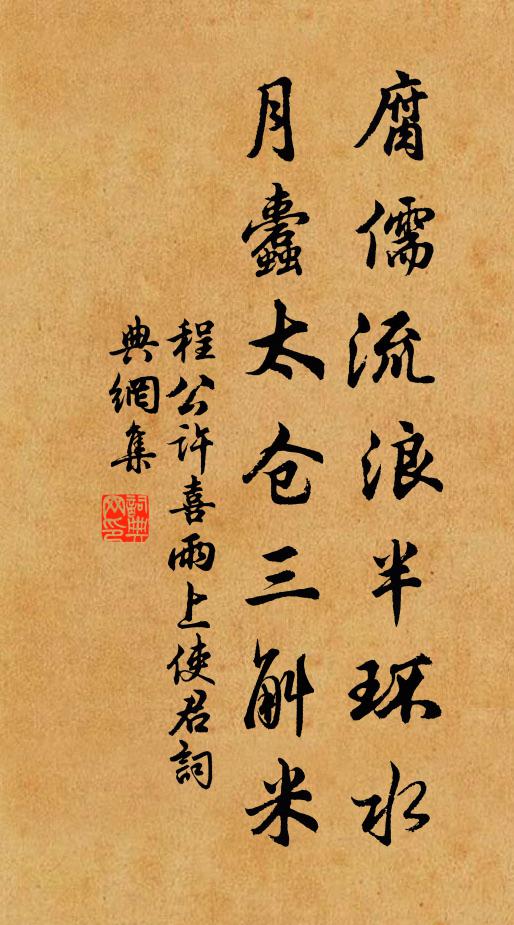 腐儒流浪半环水
月蠹太仓三斛米
程公许喜雨上使君詞
典網集
詞典网印